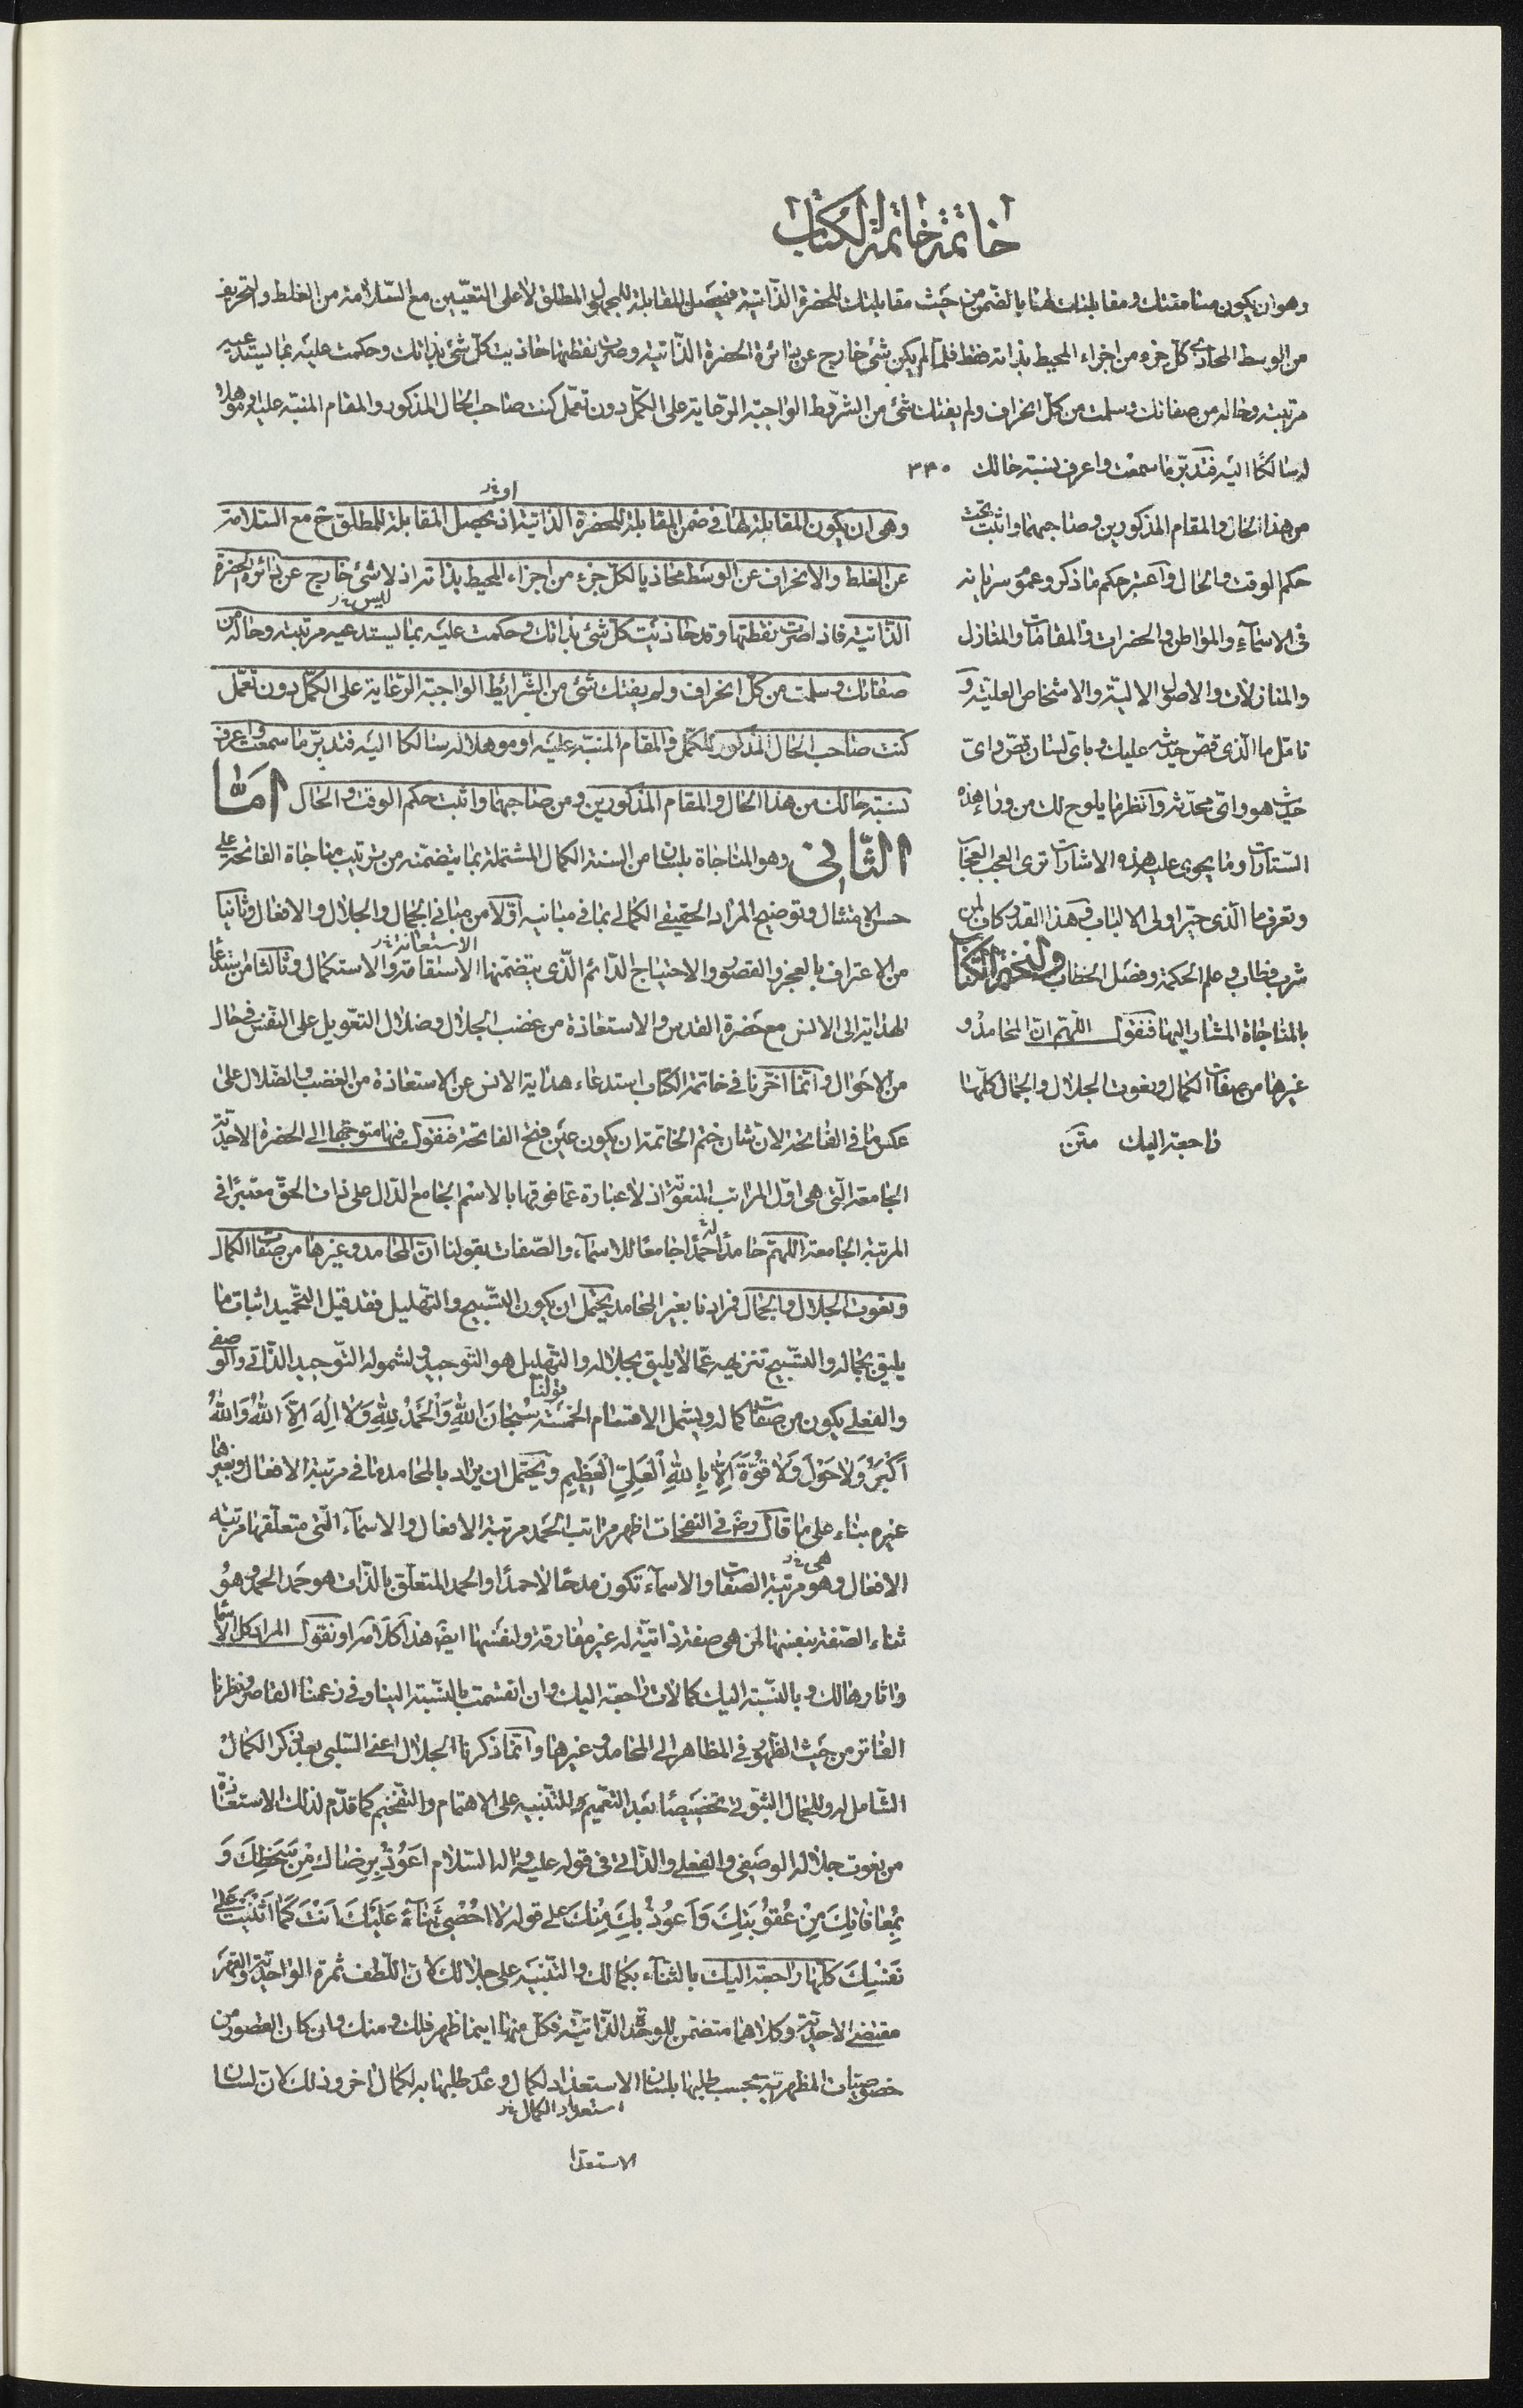 خاتمة خاتمة الكتاب
وهو ان يكون مسامتتك ومقابلتك لهنا بالضمن من حيث مقابلتك للحضرة الذاتية فيحصل المقابلة للمجهول المطلق لا على التعيين مع السلامة من الغلط والتحريف
من الوسط المحاذى كل جزء من اجزاء المحيط بذاته فقط فلما لم يكن شئ خارج عن دائرة الحضرة الذاتية وصرت نقطتها حاذيت كل شئ بذاتك وحكمت عليه بما يستدعيه
مرتبته وحاله من صفاتك وسلمت من كل انحراف ولم يفتك شئ من الشروط الواجبة الرعاية على الكمل دون تعمل كنت صاحب الحال المذكور والمقام المنبه عليه او موهلا
له سالكا اليه فتدبر ما سمعت واعرف نسبة حالك ٣٣٠
من هذا الحال والمقام المذكورين وصاحبهما واثبت تحت
حكم الوقت والحال واعتبر حكم ما ذكر وعموم سريانه
فى الاسماء والمواطن والحضرات والمقامات والمنازل
والمنازلات والاصول الالهية والاشخاص العلية و
تامل ما الذى قص حديثه عليك وباى لسان قص واى
حديث هو واى محدثه وانظر ما يلوح لك من وراء هذه
الستارات وما يحوى عليه هذه الاشارات ترى العجب العجاب
وتعرف ما الذى حير اولى الالباب وهذا القدر كاف لمن
شرب فطاب وعلم الحكمة وفصل الخطاب ولنختم الكتاب
بالمناجاة المشار اليها فنقول اللهم ان المحامد و
غيرها من صفات الكمال ونعوت الجلال والجمال كلها
راجعة اليك متن
او نخ
وهى ان يكون المقابلة لها فى ضمن المقابلة للحضرة الذاتية اذ يحصل المقابلة للمطلق ح مع السلامة
عن الغلط والانحراف عن الوسط محاذيا لكل جزء من اجزاء المحيط بذاته اذ لا شئ خارج عن دائرة الحضرة
ليس نخ
الذاتية فاذا صرت نقطتها وقد حاذيت كل شئ بذاتك وحكمت عليه بما يستدعيه مرتبته وحاله من
صفاتك وسلمت من كل انحراف ولم يفتك شئ من الشرائط الواجبة الرعاية على الكمل دون تعمل
كنت صاحب الحال المذكور للكمل والمقام المنبه عليه او موهلا له سالكا اليه فتدبر ما سمعت واعرف
نسبة حالك من هذا الحال والمقام المذكورين ومن صاحبهما واثبت حكم الوقت والحال اما
الثانى وهو المناجاة بلسان من السنة الكمال المشتملة بما يتضمنه من ترتيب مناجاة الفاتحة على
حسن الامتثال وتوضيح المراد الحقيقى الكمالى بما فى مبانيه اولا من مبانى الجمال والجلال والافعال وثانيا
الاستعانة نخ
من الاعتراف بالعجز والقصور والاحتياج الدائم الذى يتضمنها الاستقامة والاستكمال وثالثا من استدعاء
الهداية الى الانس مع حضرة القدس والاستعاذة من غضب الجلال وضلال التعويل على النفس فى حال
من الاحوال وانما اخرنا فى خاتمة الكتاب استدعاء هداية الانس عن الاستعاذة من الغضب والضلال على
عكس ما فى الفاتحة لان شان ختم الخاتمة ان يكون عين فتح الفاتحة فنقول فيها متوجها الى الحضرة الاحدية
الجامعة التى هى اول المراتب المنعوتة اذ لا عبارة عما فوقها بالاسم الجامع الدال على ذات الحق معتبرا فى
المرتبة الجامعة اللهم حامدا له حمدا جامعا للاسماء والصفات بقولنا ان المحامد وغيرها من صفات الكمال
ونعوت الجلال والجمال فمرادنا بغير المحامد يحتمل ان يكون التسبيح والتهليل فقد قيل التحميد اثبات ما
يليق بجماله والتسبيح تنزيهه عما لا يليق بجلاله والتهليل هو التوحيد ولشموله التوحيد الذاتى والوصفى
والفعلى يكون من صفات كماله ويشمل الاقسام الخمسة قولنا سُبْحَانَ اللهِ وَالْحَمْدُ لِلّهِ وَلَا اِلهَ اِلَّا اللهُ وَاللهُ
اَكْبَرُ وَلَا حَوْلَ وَلَا قُوَّةَ اِلَّا بِاللهِ الْعَلِىِّ الْعَظِيمِ ويحتمل ان يراد بالمحامد ما فى مرتبة الافعال وبغيرها
غيره بناء على ما قال رض فى النفحات اظهر مراتب الحمد مرتبة الافعال والاسماء التى متعلقها مرتبة
هى نخ
الافعال وهو مرتبة الصفات والاسماء تكون مدحا لا حمدا والحمد المتعلق بالذات هو حمد الحمد وهو
ثناء الصفة بنفسها لمن هى صفة ذاتية له غير مفارقة ولنفسها ايض هذا كلامه او نقول المراد كل الاسماء
واثارها لك وبالنسبة اليك كمالات راجعة اليك وان انقسمت بالنسبة الينا وفى زعمنا القاصر ونظرنا
الفاتر من حيث الظهور فى المظاهر الى المحامد وغيرها وانما ذكرنا الجلال اعنى السلبى بعد ذكر الكمال
الشامل له وللجمال الثبوتى تخصيصا بعد التعميم للتنبيه على الاهتمام والتفخيم كما قدم لذلك الاستعاذة
من نعوت جلاله الوصفى والفعلى والذاتى فى قوله عليه واله السلام اَعُوذُ بِرِضَاكَ مِنْ سَخَطِكَ وَ
بِمُعَافَاتِكَ مِنْ عُقُوبَتِكَ وَاَعُوذُ بِكَ مِنْكَ على قوله لا اُحْصِى ثَنَاءً عَلَيْكَ اَنْتَ كَمَا اَثْنَيْتَ عَلَى
نَفْسِكَ كلها راجعة اليك بالثناء بكمالك والتنبيه على جلالك لان اللطف ثمرة الواحدية والقهر
مقتضى الاحدية وكلاهما متضمن للوحدة الذاتية فكل منها اينما ظهر فلك ومنك وان كان القصور من
خصوصيات المظهرية بحسب طلبها بلسان الاستعداد لكمال وعدم طلبها به لكمال اخر وذلك لان لسان
استعداد الكمال نخ
الاستعدا